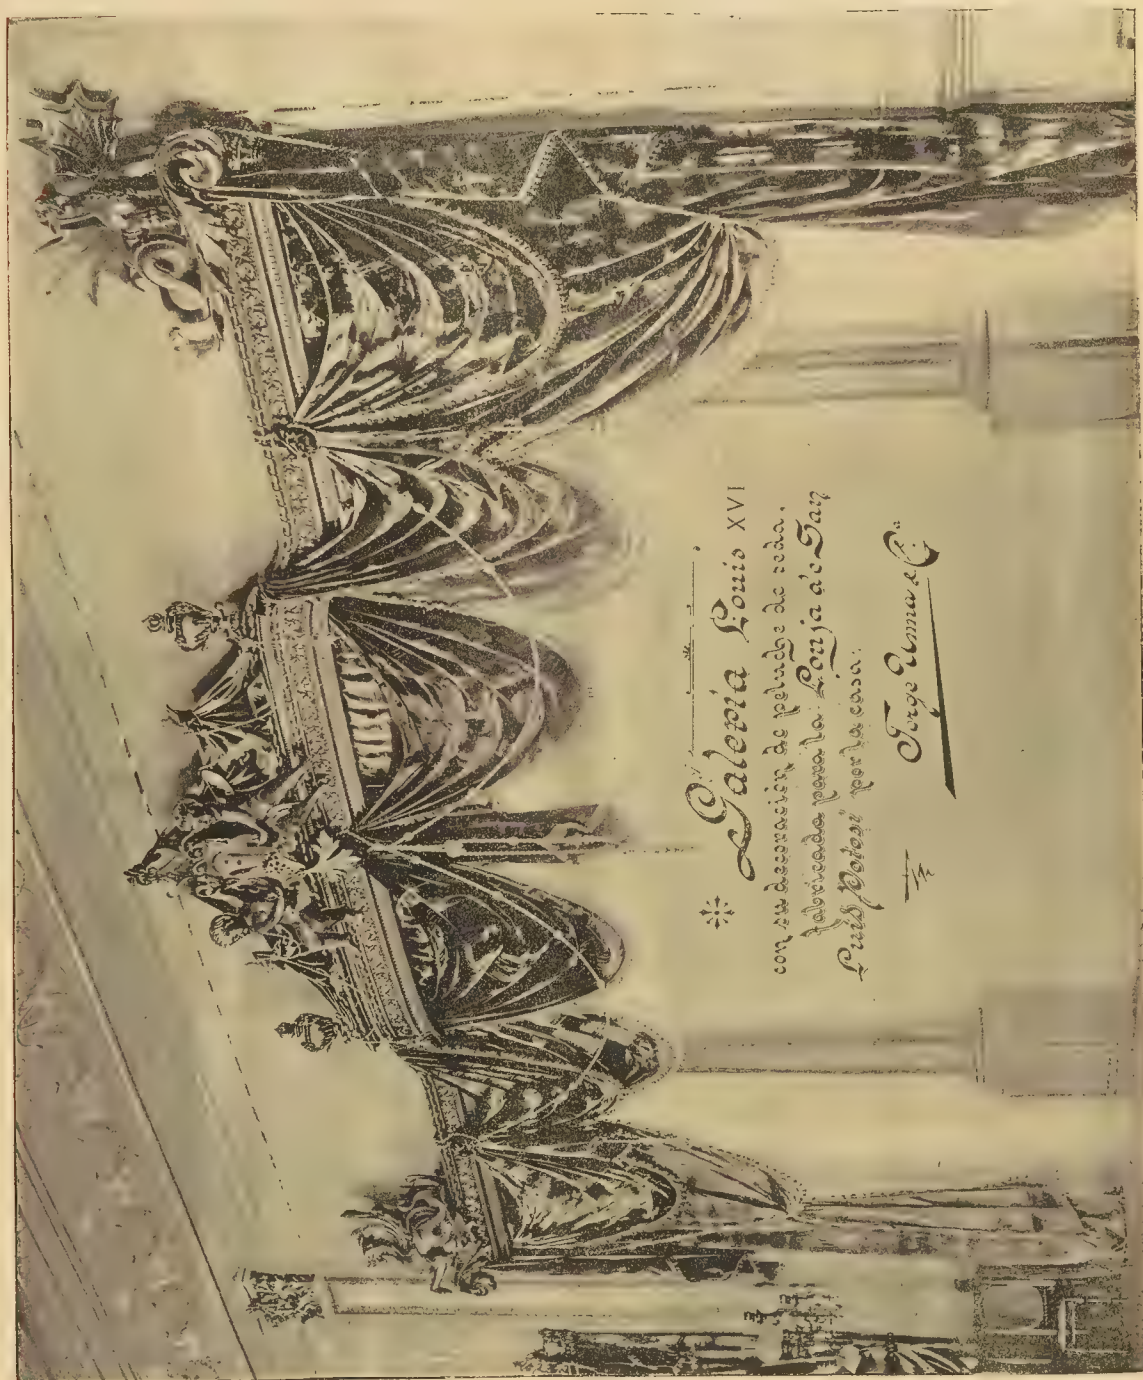 Galería Louis XVI
con su decoración de peluche de seda,
fabricada para la Lonja de San
Luis Potosí por la casa:
Jorge Unna & Cª